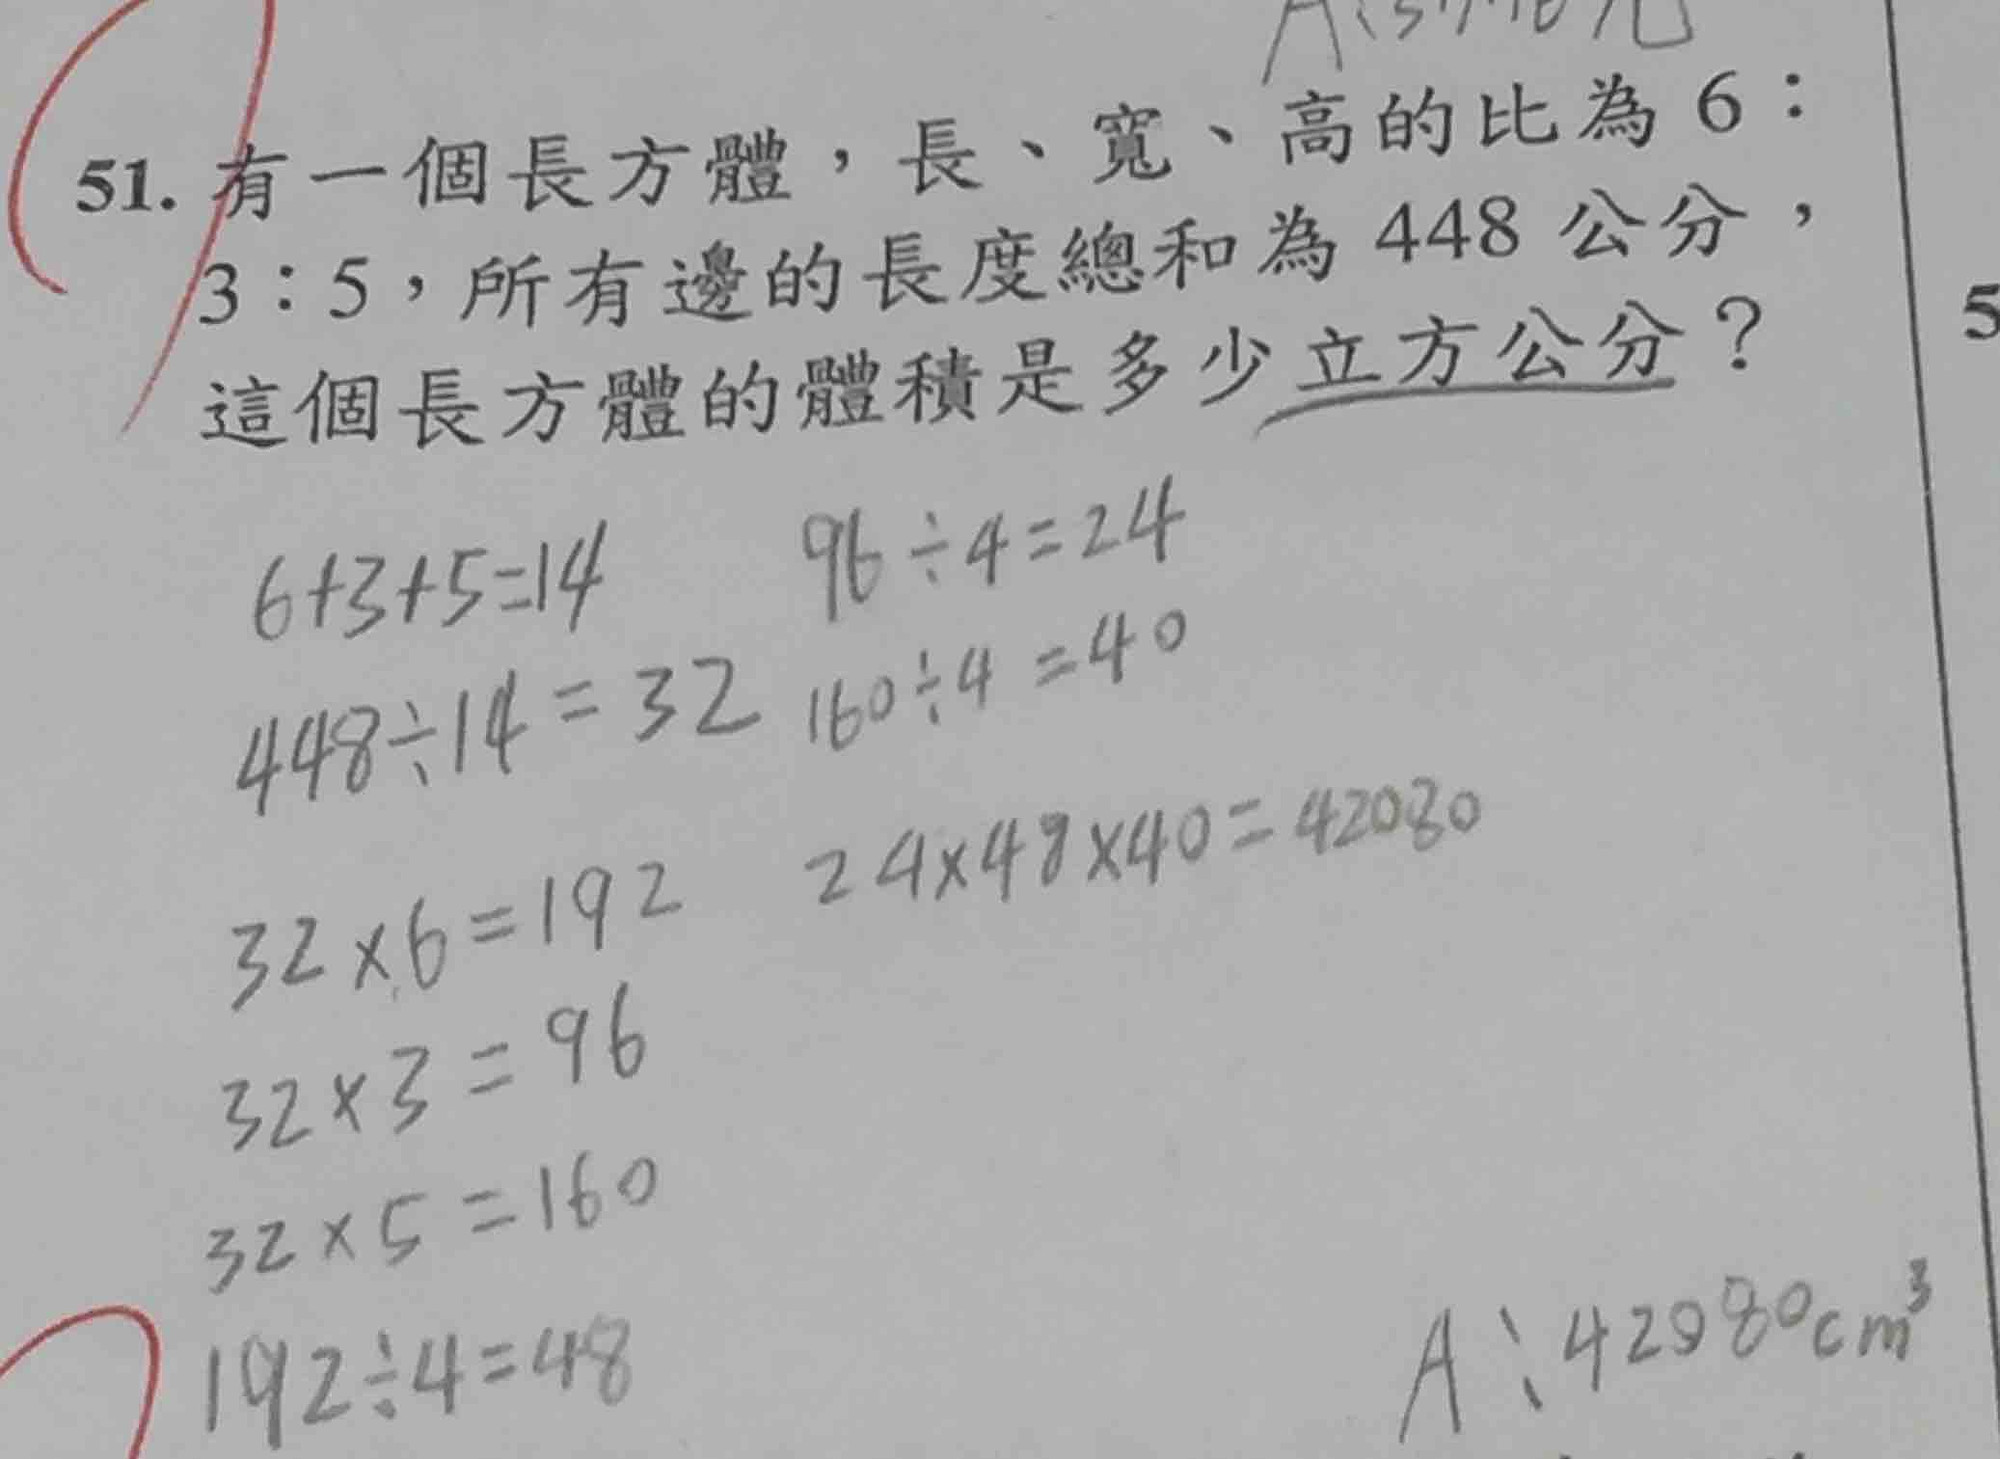 51. 有一個長方體，長、寬、高的比為 6：
3：5，所有邊的長度總和為 448 公分，
這個長方體的體積是多少立方公分？
5
6+3+5=14
448÷14=32
32×6=192
32×3=96
32×5=160
192÷4=48
96÷4=24
160÷4=40
24×48×40=42080
A：42080cm³